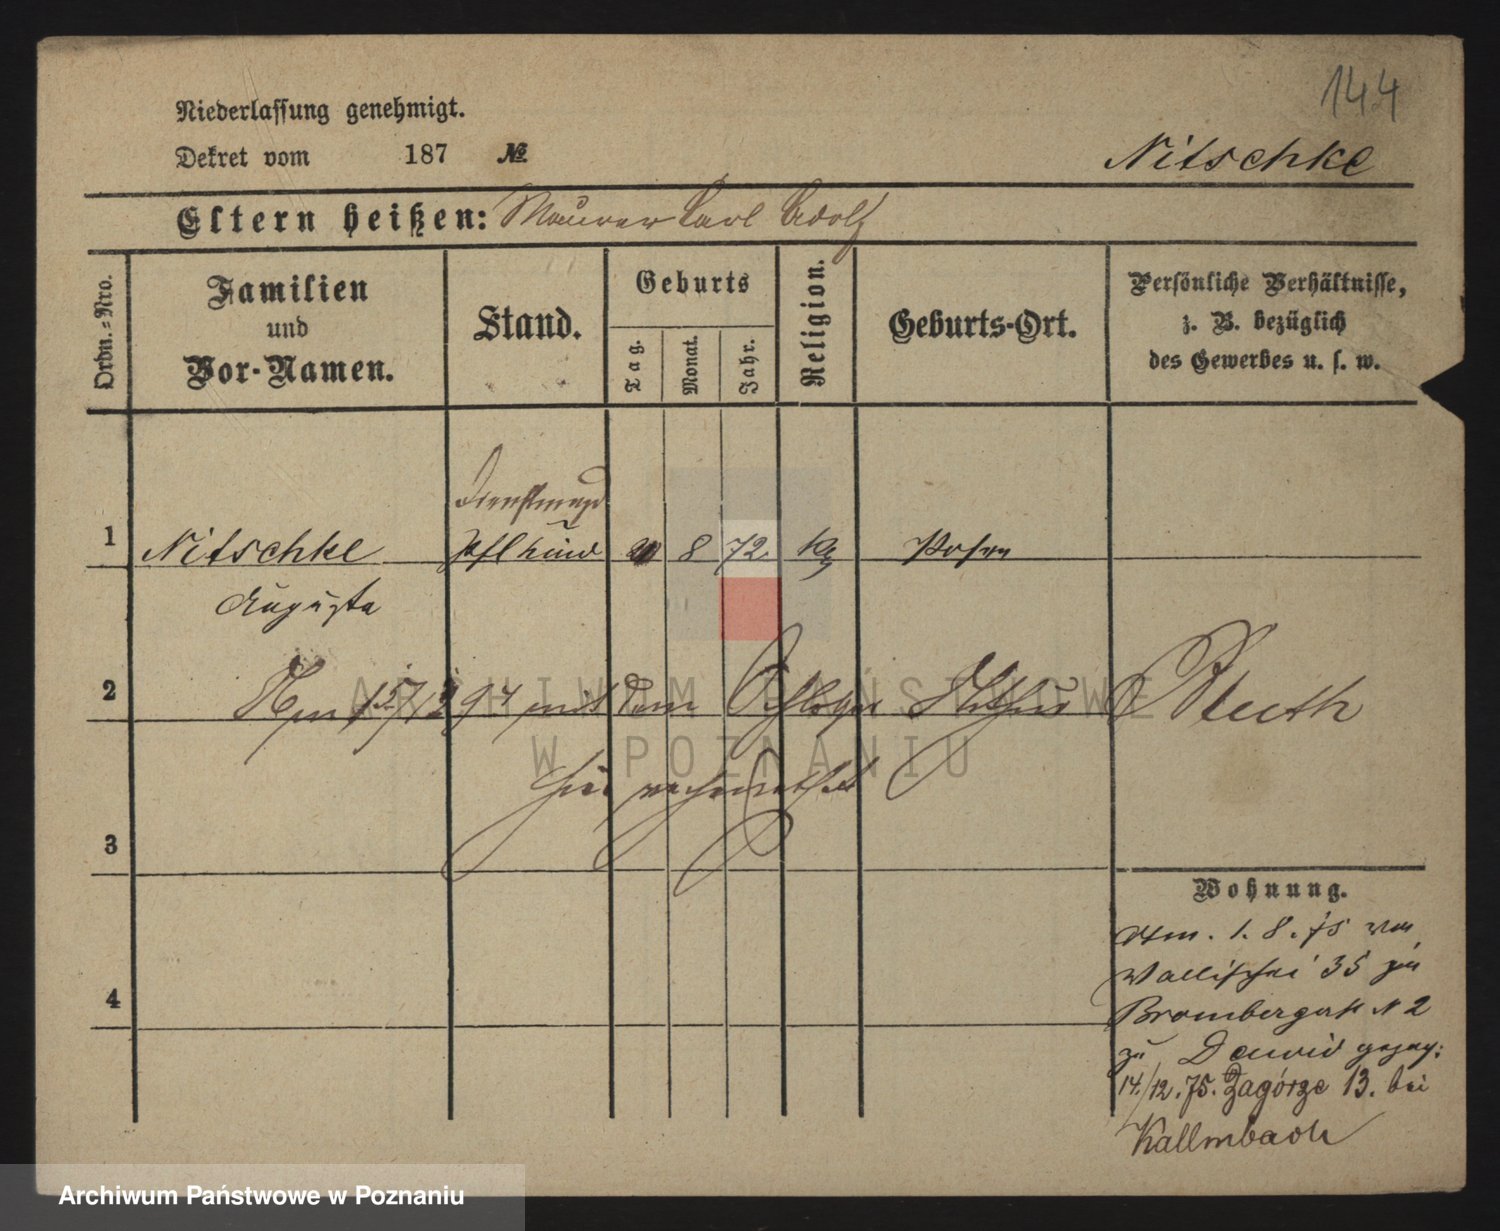 144
Niederlassung genehmigt.
Dekret vom 187 №
Nitschke
Eltern heißen: Maurer Carl Adolf
Ordn.=Nro.
Familien
und
Vor-Namen.
Stand.
Geburts
Tag.
Monat.
Jahr.
Religion.
Geburts-Ort.
Persönliche Verhältnisse,
z. B. bezüglich
des Gewerbes u. s. w.
Dienstmagd
1 Nitschke 8 72 Posen
Augusta
2 Am mit dem Arthur Bluth
ARCHIWUM PAŃSTWOWE
W POZNANIU
hier verheirathet
3
Wohnung.
Am. 1. 8. 75 von
Wallischei 35 zu
Brombergerstr N 2
zu gezog:
4
14./12.75. Zagórze 13. bei
Kallmbach
Archiwum Państwowe w Poznaniu